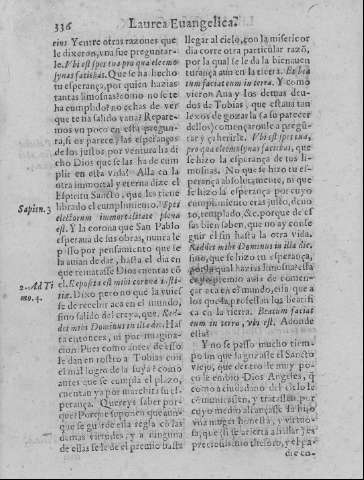 336
Laurea Euangelica.
rius Y entre otras razones que
le dixeron, vna fue preguntar-
le. Vbi est spes tua pro qua eleemo
synas faciebas. Que se ha hecho
tu esperança, por quien hazias
tantas limosnas? como no se te
ha cumplido? no echas de ver
que te ha salido vana? Repare-
mos vn poco en esta pregun-
ta, si os parece, las esperanças
de los justos, por ventura ha di
cho Dios que se las ha de cum
plir en esta vida? Alla en la
otra immortal y eterna dize el
Espiritu Sancto, que les tiene
Sapien. 3
librado el cumplimiento. Spes
electorum immortalitate plena
est. Y la corona que San Pablo
esperaua de sus obras, nunca le
passo por pensamiento que se
la auian de dar, hasta el dia en
que rematasse Dios cuentas cō
2. Ad Ti
mo. 4.
el. Reposita est mihi corona iusti-
tiæ. Dixo pero no que la vuiesse
de receuir aca en el mundo,
sino salido del creya, que. Red-
det mihi Dominus in illa die. Has
ta entonces, ni por imagina-
cion. Pues como antes de esso
le dan en rostro a Tobias con
el mal logro de la suya? como
antes que se cumpla el plazo,
cuentan ya por marchita su es-
perança. Quereys saber por-
que? Porque suponen que aun-
que se guarde ella regla cō las
demas virtudes, y a ninguna
de ellas se le de el premio hasta
llegar al cielo, con la misericor
dia corre otra particular razō,
por la qual se le da la bienauen
turança aun en la tierra. Et bea
tum faciat eum in terra. Y como
vieron Ana y los demas deu-
dos de Tobias, que estaua tan
lexos de gozarla (a su parecer
dellos) començaronle a pregū-
tar y çaherirle. Vbi est spes tua,
pro qua eleemosynas faciebas, que
se hizo la esperança de tus li-
mosnas. No que se hizo tu es-
perança absolutamente, ni que
se hizo la esperança por cuyo
cumplimiento eras justo, deuo
to, templado, &c. porque de es
sas bien saben, que no ay conse
guir el fin hasta la otra vida.
Reddet mihi Dominus in illa die.
sino, que se hizo tu esperança,
por la qual hazias limosnas? la
que premio auia de comen-
çar aca en el mundo, ella que a
los que la professan los beatifi
ca en la tierra. Beatum faciat
eum in terra, vbi est. Adonde
esta?
Y no se passo mucho tiem-
po sin que la gozasse el Sancto
viejo, que dentro de muy po-
co le embio Dios Angeles, q̄
como a ciudadano del cielo le
comunicassen, y tratassen, por
cuyo medio alcançasse su hijo
vna muger honesta, y virtuo-
sa, que (si se acierta a hallar) es
preciosissimo thesoro, y el pa-
dre co-